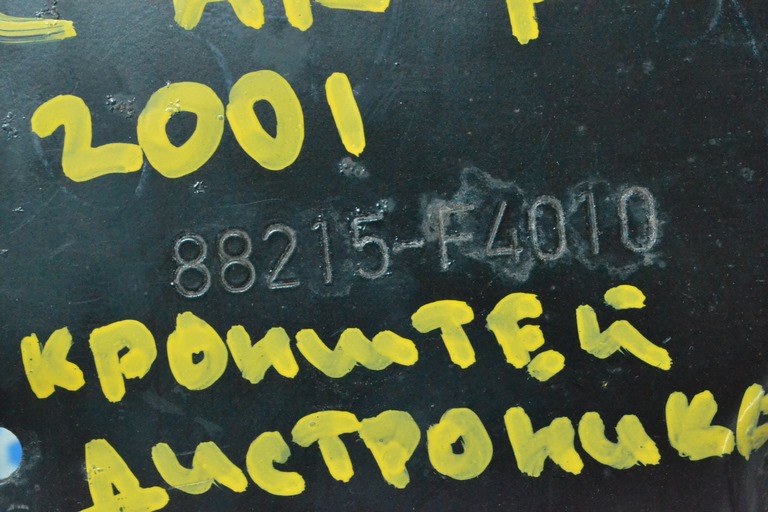 2001
88215-F4010
КРОНШТЕЙ
ДИСТРОНИКА